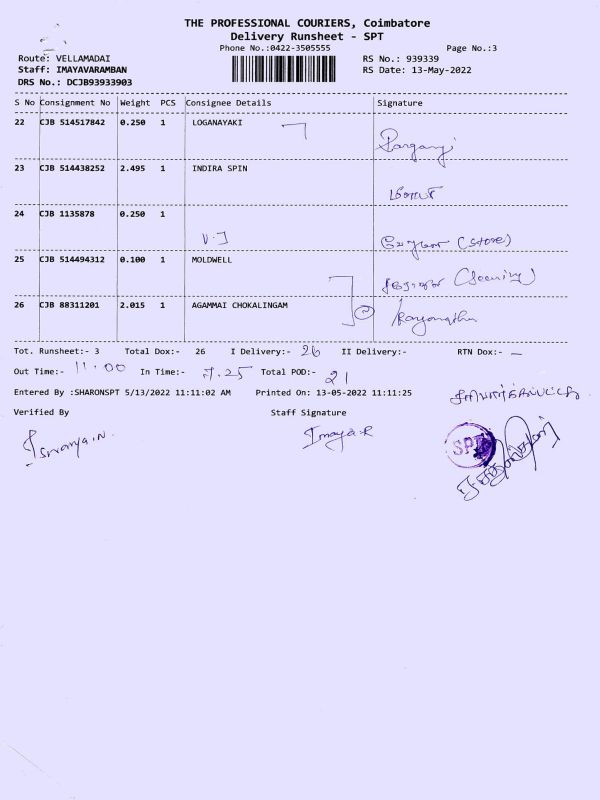 THE PROFESSIONAL COURIERS, Coimbatore
Delivery Runsheet - SPT
Phone No.:0422-3505555 Page No.:3
Route: VELLAMADAI RS No.: 939339
Staff: IMAYAVARAMBAN RS Date: 13-May-2022
DRS No.: DCJB93933903
S No Consignment No Weight PCS Consignee Details Signature
22 CJB 514517842 0.250 1 LOGANAYAKI
23 CJB 514438252 2.495 1 INDIRA SPIN
24 CJB 1135878 0.250 1
V.J (store)
25 CJB 514494312 0.100 1 MOLDWELL
26 CJB 88311201 2.015 1 AGAMMAI CHOKALINGAM
Tot. Runsheet:- 3 Total Dox:- 26 I Delivery:- 26 II Delivery:- RTN Dox:- —
Out Time:- 11.00 In Time:- 7.25 Total POD:- 21
Entered By :SHARONSPT 5/13/2022 11:11:02 AM Printed On: 13-05-2022 11:11:25
Verified By Staff Signature
Imaya.R
SPT